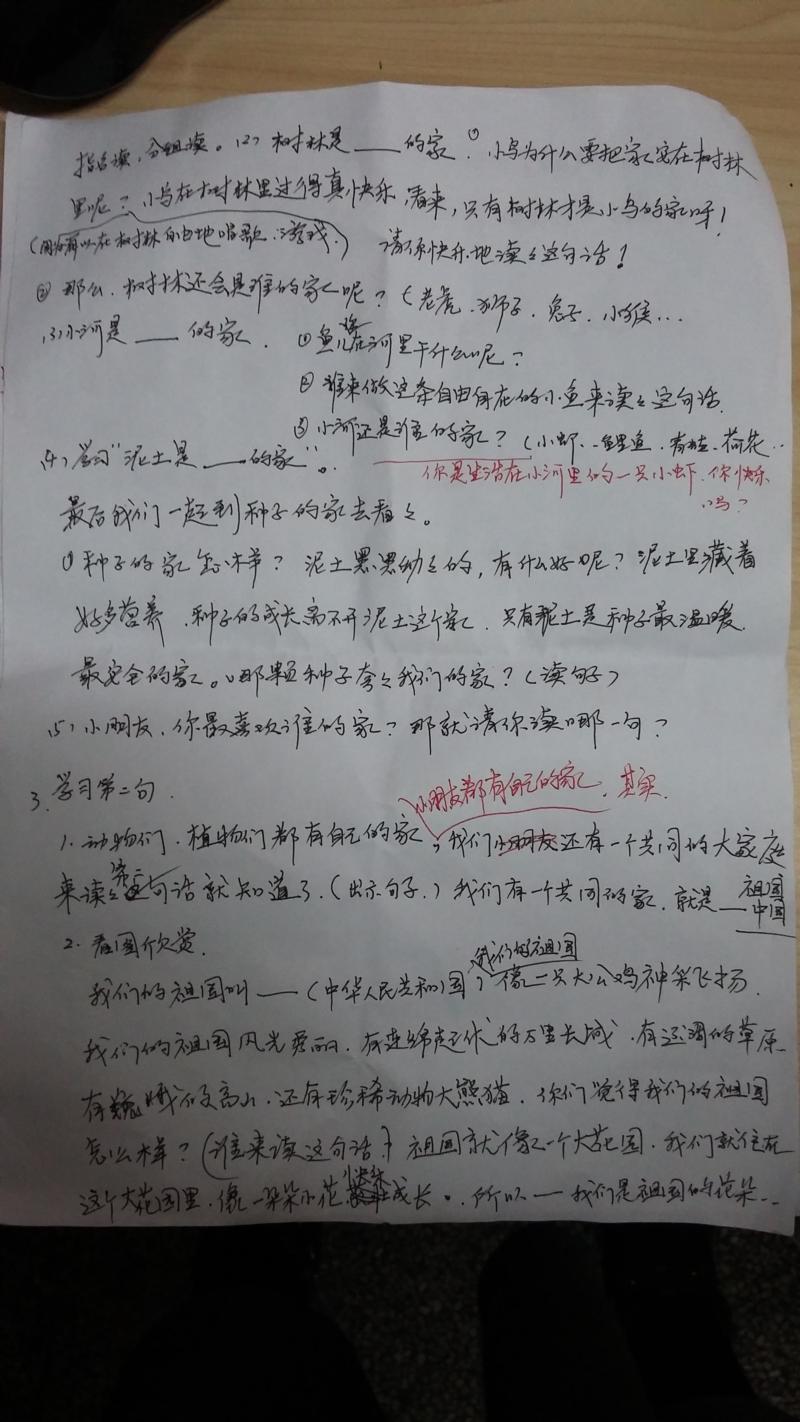 指名读，分组读。(2) 树林是___的家。① 小鸟为什么要把家安在树林
里呢？小鸟在树林里过得真快乐，看来，只有树林才是小鸟的家呀！
(因为可以在树林自由地唱歌、游戏。) 请你快乐地读读这句话！
② 那么，树林还会是谁的家呢？(老虎、狮子、兔子、小猴…
(3) 小河是___的家。① 鱼儿在河里干什么呢？
② 谁来做这条自由自在的小鱼来读读这句话
③ 小河还是谁的家？(小虾…鲤鱼、青蛙、荷花…
(4) 学习“泥土是___的家”。
你是生活在小河里的一只小虾，你快乐
吗？
最后我们一起到种子的家去看看。
① 种子的家怎么样？泥土黑黑幼幼的，有什么好呢？泥土里藏着
好多营养，种子的成长离不开泥土这个家，只有泥土是种子最温暖
最安全的家。哪颗种子夸夸我们的家？(读句子)
(5) 小朋友，你最喜欢谁的家？那就请你读哪一句？
3. 学习第二句.
小朋友都有自己的家，其实
1. 动物们、植物们都有自己的家，我们小朋友还有一个共同的大家庭
来读读完这句话就知道了.(出示句子.) 我们有一个共同的家，就是—祖国
中国
2. 看图欣赏.
我们的祖国
我们的祖国叫—(中华人民共和国) 像一只大公鸡神采飞扬.
我们的祖国风光秀丽，有连绵起伏的万里长城，有辽阔的草原
有巍峨的高山，还有珍稀动物大熊猫，你们觉得我们的祖国
怎么样？(谁来读这句话) 祖国就像一个大花园，我们就住在
这个大花园里，像一朵朵小花快乐成长。所以—我们是祖国的花朵…